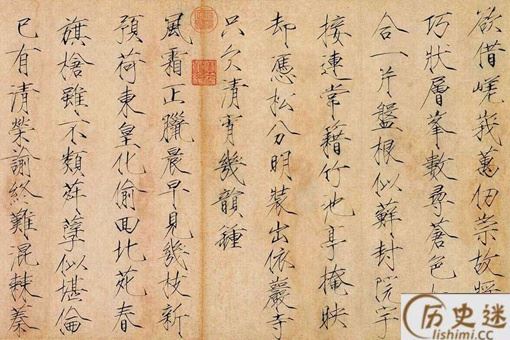 欲借嵯峨萬仞崇故將
巧狀層峯數尋蒼色
合一片盤根似蘚封院宇
接連常籍竹池亭掩映
却應松分明裝出依巖寺
只欠清宵幾韻鍾
風霜正臘晨早見幾枝新
預荷東皇化偷回北苑春
旗槍雖不類荈蘖似堪倫
已有清榮諭終難混棘蓁
历史迷
lishimi.cc